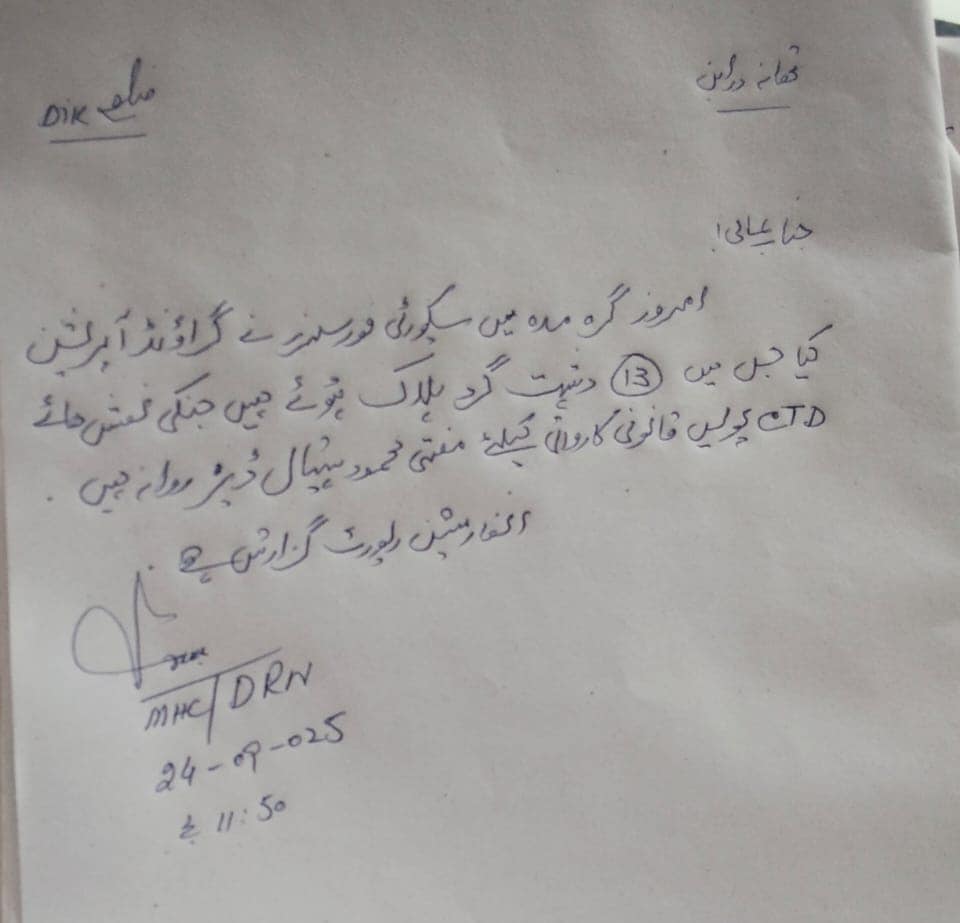 تھانہ درابن
ضلع DIK
جناب عالی!
امروز گرہ مدہ میں سیکورٹی فورسسز نے گراؤنڈ آپریشن
کیا جس میں 13 دہشت گرد ہلاک ہوئے ہیں جنکی نعش ہائے
CTD پولیس قانونی کاروائی کیلئے مفتی محمود ہسپتال ڈیرہ روانہ ہیں۔
انفارمیشن رپورٹ گزارش ہے
MHC/DRN
24-09-025
11:50 بجے